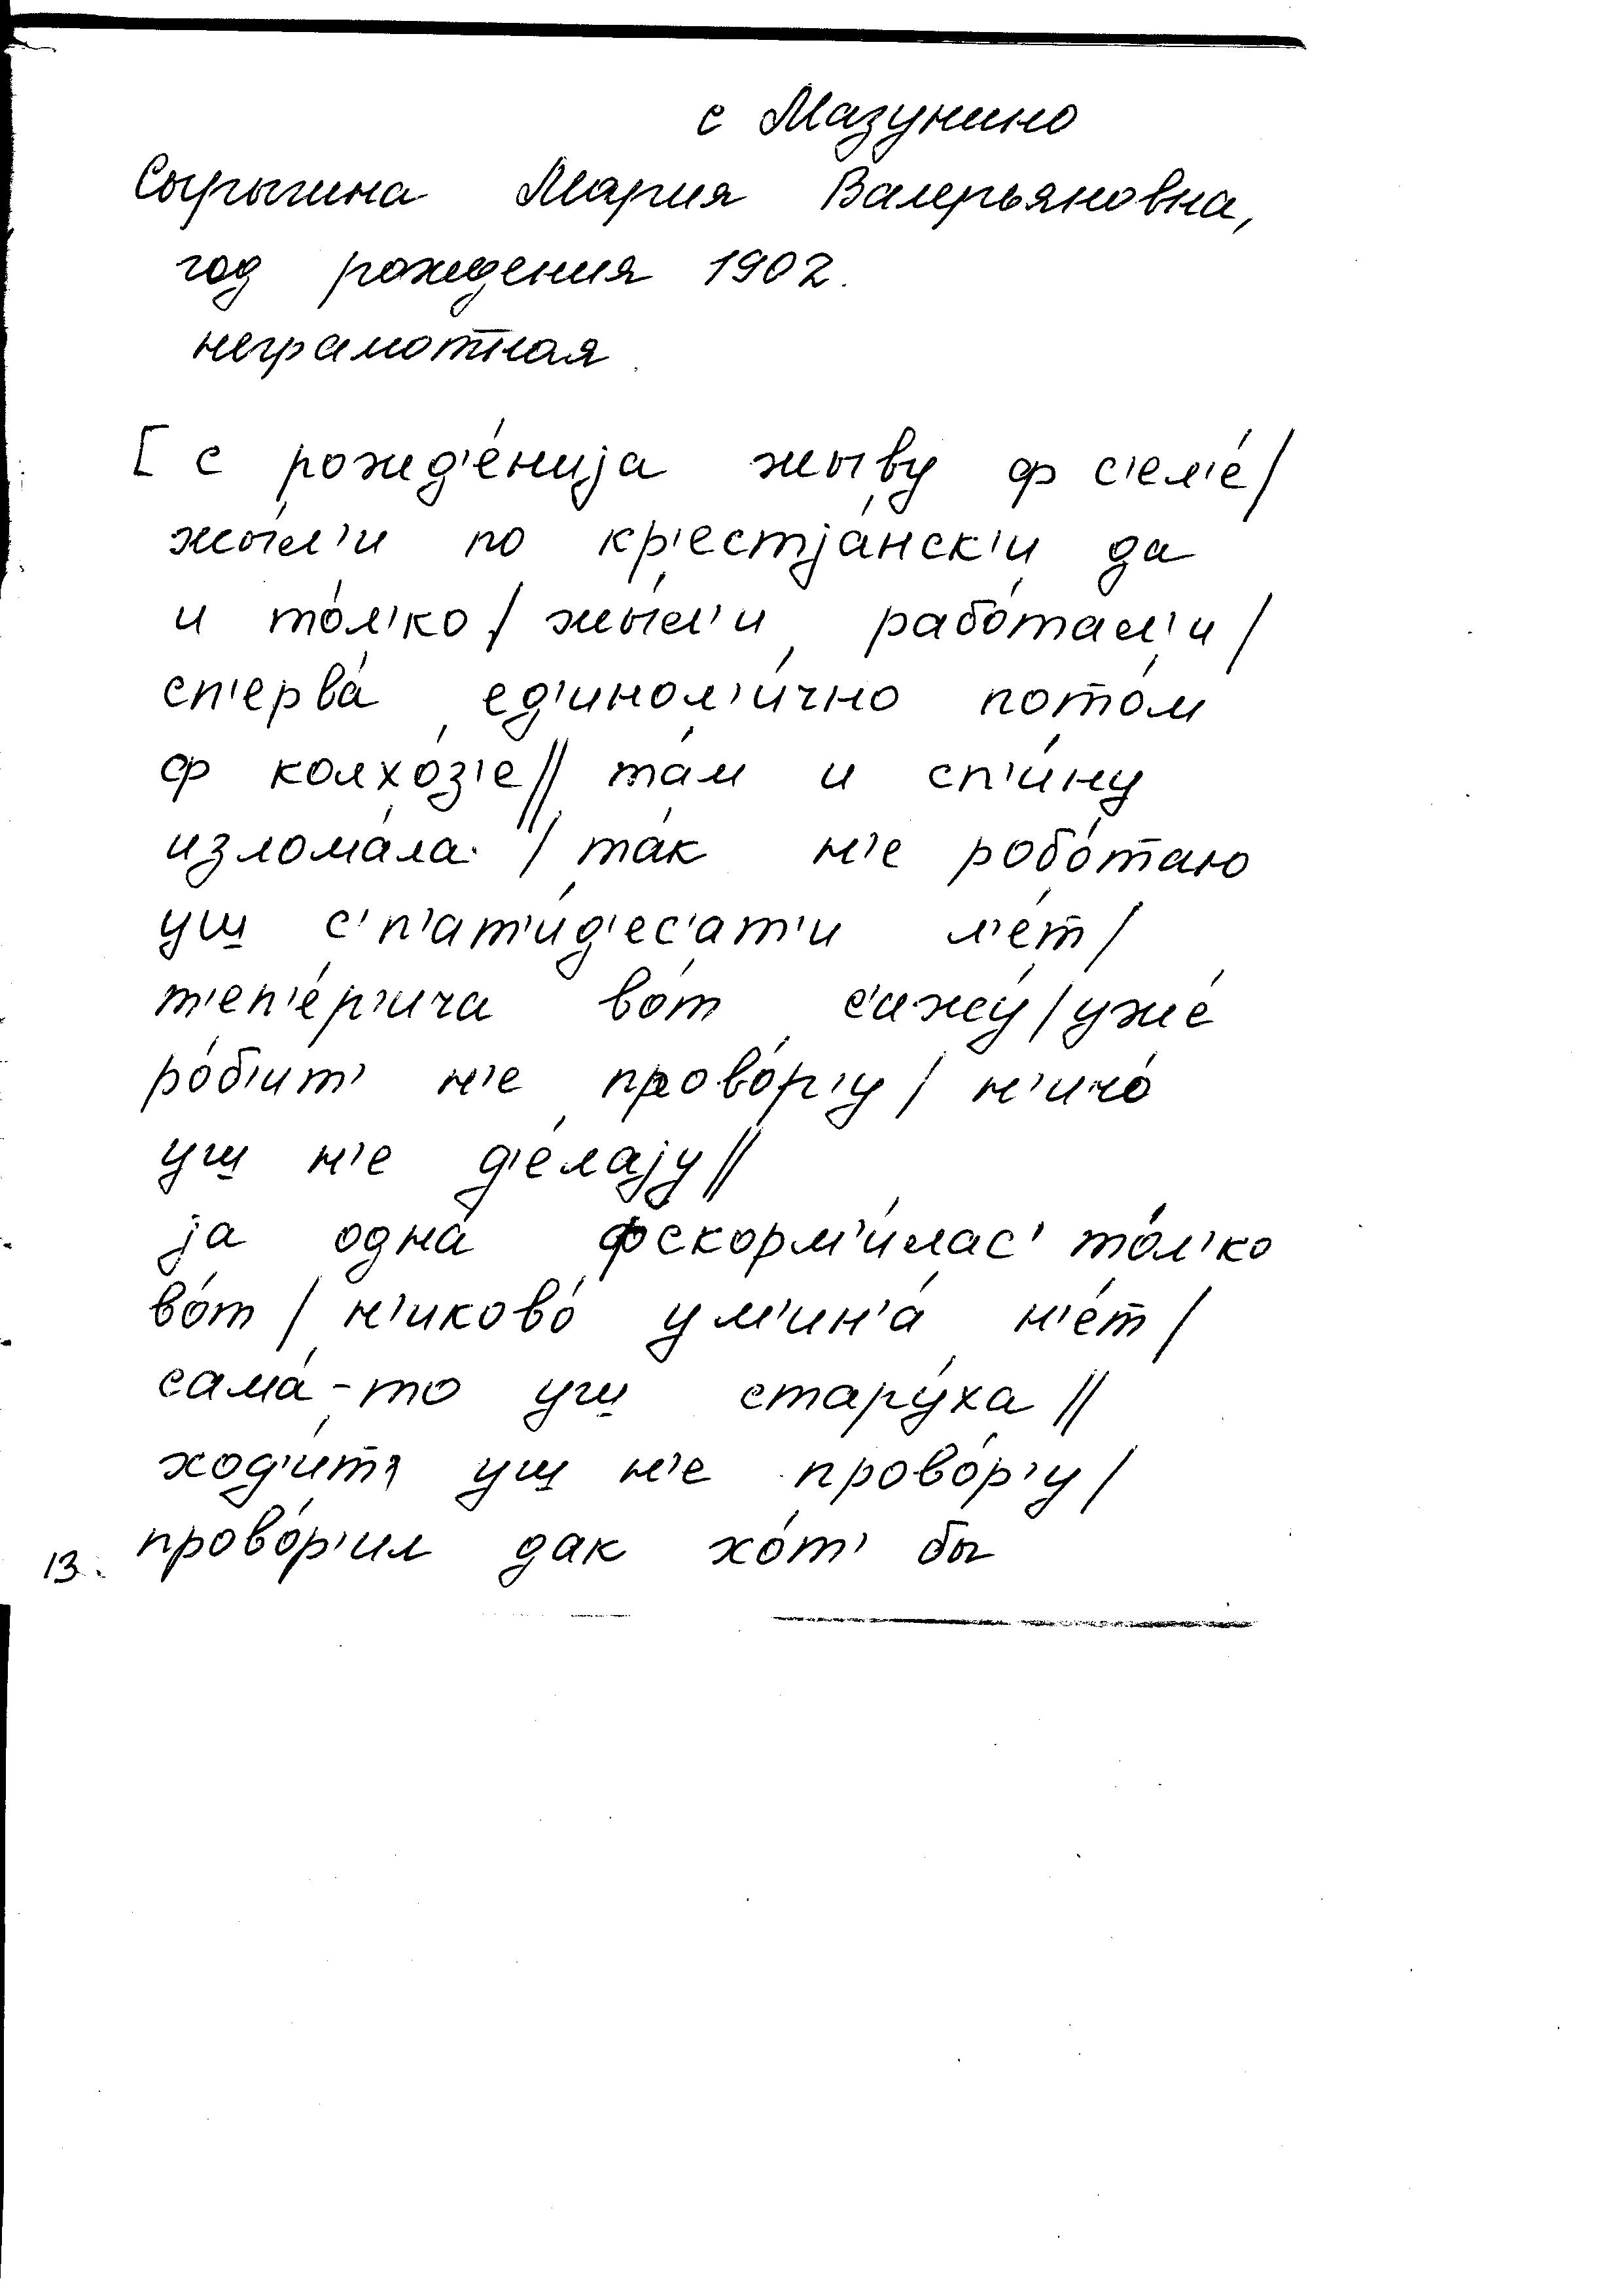 с Мазунино
Сырыгина Мария Валерьяновна,
год рождения 1902.
неграмотная
[ с рожд'е́нија жыву ф с'ел'е́/
жы́л'и по кр'естја́нск'и да
и то́л'ко / жы́л'и работал'и /
сп'ерва́ ед'инол'и́чно пото́м
ф колхо́з'е // та́м и сп'и́ну
излома́ла / та́к н'е робо́таю
уш с'п'ат'и́д'ес'ат'и л'е́т /
т'еп'е́р'ича во́т с'ижу́ / уже́
ро́б'ит' н'е прово́р'у / н'ичо́
уш н'е д'е́лају //
ја одна́ фскорм'и́лас' то́л'ко
во́т / н'иково́ у м'ин'а́ н'е́т /
сама́-то уш стару́ха //
ход'и́т' уш н'е прово́р'у /
13. прово́р'ил дак хо́т' бы